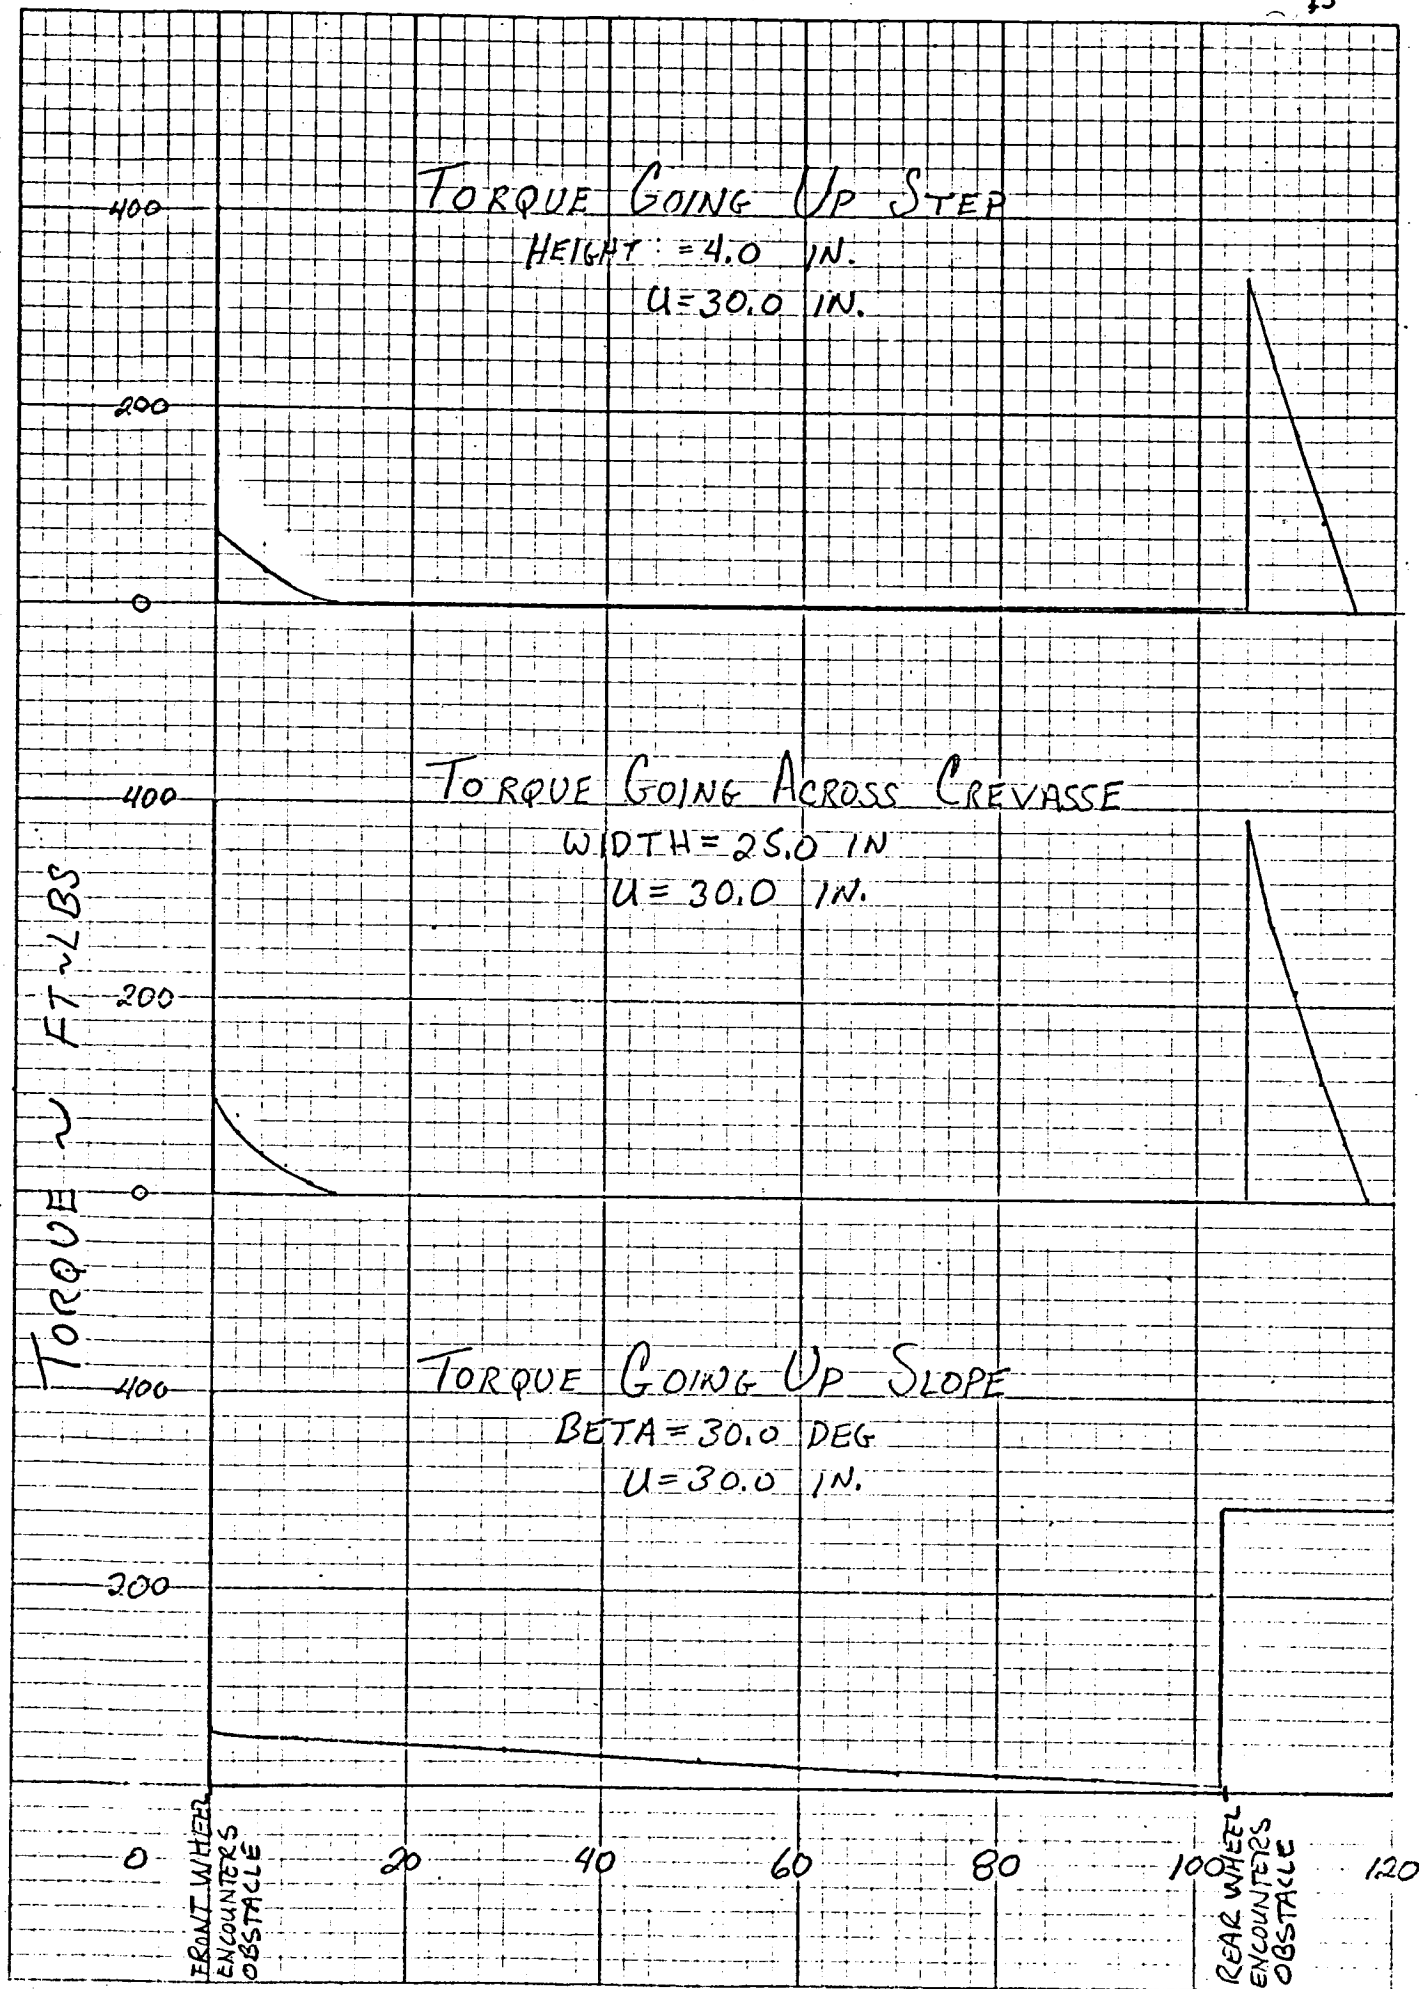 TORQUE GOING UP STEP
HEIGHT = 4.0 IN.
U = 30.0 IN.
400
200
0
TORQUE GOING ACROSS CREVASSE
WIDTH = 25.0 IN
U = 30.0 IN.
400
200
0
TORQUE ~ FT~LBS
TORQUE GOING UP SLOPE
BETA = 30.0 DEG
U = 30.0 IN.
400
200
0 20 40 60 80 100 120
FRONT WHEEL
ENCOUNTERS
OBSTACLE
REAR WHEEL
ENCOUNTERS
OBSTACLE